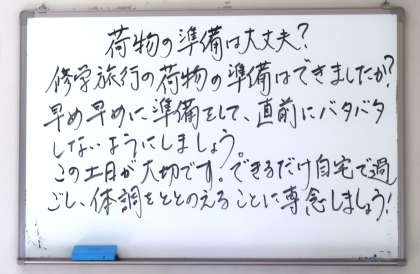 荷物の準備は大丈夫?
修学旅行の荷物の準備はできましたか?
早め早めに準備をして、直前にバタバタ
しないようにしましょう。
この土日が大切です。できるだけ自宅で過
ごし、体調をととのえることに専念しましょう!